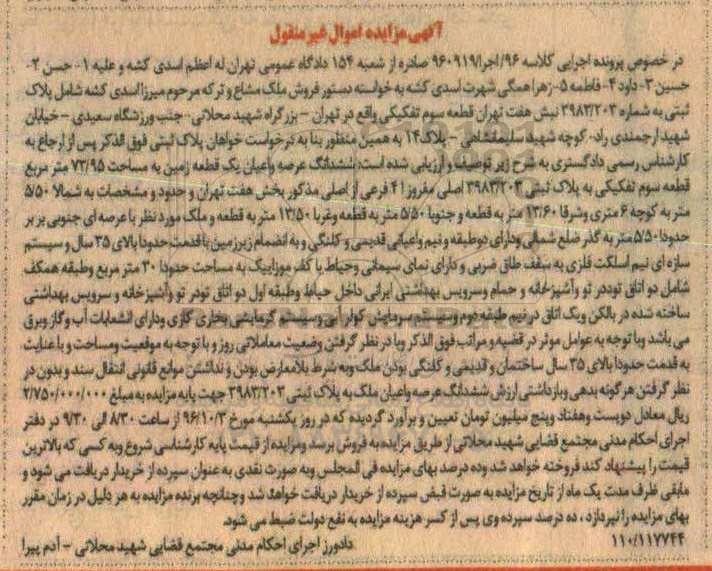 آگهی مزایده اموال غیر منقول
در خصوص پرونده اجرایی کلاسه ۹۶/اجرا/۹۶۰۹۱۹ صادره از شعبه ۱۵۴ دادگاه عمومی تهران له اعظم اسدی کشه و علیه ۱- حسن ۲-
حسین ۳- داود ۴- فاطمه ۵- زهرا همگی شهرت اسدی کشه به خواسته دستور فروش ملک مشاع و ترکه مرحوم میرزا اسدی کشه شامل پلاک
ثبتی به شماره ۳۹۸۳/۲۰۳ نبش هفت تهران قطعه سوم تفکیکی واقع در تهران - بزرگراه شهید محلاتی- جنب ورزشگاه سعیدی - خیابان
شهید ارجمندی راد- کوچه شهید سلیمانشاهی - پلاک ۱۴ به همین منظور بنا به درخواست خواهان پلاک ثبتی فوق الذکر پس از ارجاع به
کارشناس رسمی دادگستری به شرح زیر توصیف و ارزیابی شده است: ششدانگ عرصه واعیان یک قطعه زمین به مساحت ۷۳/۹۵ متر مربع
قطعه سوم تفکیکی به پلاک ثبتی ۳۹۸۳/۲۰۳ اصلی مفروز ۴۱ فرعی از اصلی مذکور بخش هفت تهران و حدود و مشخصات به شمالا ۵/۵۰
متر به کوچه ۶ متری وشرقا ۱۳/۶۰ متر به قطعه و جنوبا ۵/۵۰ متر به قطعه وغربا ۱۳/۵۰ متر به قطعه و ملک مورد نظر با عرصه ای جنوبی بر بر
حدودا ۵/۵۰ متر به گذر ضلع شمالی ودارای دوطبقه و نیم واعیانی قدیمی و کلنگی و به انضمام زیرزمین با قدمت حدودا بالای ۳۵ سال و سیستم
سازه ای نیم اسکلت فلزی به سقف طاق ضربی و دارای نمای سیمانی وحیاط با کف موزاییک به مساحت حدودا ۳۰ متر مربع وطبقه همکف
شامل دو اتاق تودر تو وآشپزخانه و حمام وسرویس بهداشتی ایرانی داخل حیاط وطبقه اول دو اتاق تودر تو وآشپزخانه و سرویس بهداشتی
ساخته شده در بالکن ویک اتاق در نیم طبقه دوم وسیستم سرمایش کولر آبی وسیستم گرمایشی بخاری گازی ودارای انشعابات آب و گاز وبرق
می باشد وبا توجه به عوامل موثر در قضیه و مراتب فوق الذکر وبا در نظر گرفتن وضعیت معاملاتی روز و با توجه به موقعیت ومساحت و با عنایت
به قدمت حدودا بالای ۳۵ سال ساختمان و قدیمی و کلنگی بودن ملک وبه شرط بلامعارض بودن و نداشتن موانع قانونی انتقال سند و بدون در
نظر گرفتن هر گونه بدهی وبازداشتی ارزش ششدانگ عرصه واعیان ملک به پلاک ثبتی ۳۹۸۳/۲۰۳ جهت پایه مزایده به مبلغ ۲/۷۵۰/۰۰۰/۰۰۰
ریال معادل دویست وهفتاد وپنج میلیون تومان تعیین و برآورد گردیده که در روز یکشنبه مورخ ۹۶/۱۰/۳ از ساعت ۸/۳۰ الی ۹/۳۰ در دفتر
اجرای احکام مدنی مجتمع قضایی شهید محلاتی از طریق مزایده به فروش برسد ومزایده از قیمت پایه کارشناسی شروع وبه کسی که بالاترین
قیمت را پیشنهاد کند فروخته خواهد شد وده درصد بهای مزایده فی المجلس وبه صورت نقدی به عنوان سپرده از خریدار دریافت می شود و
مابقی ظرف مدت یک ماه از تاریخ مزایده به صورت قبض سپرده از خریدار دریافت خواهد شد وچنانچه برنده مزایده به هر دلیل در زمان مقرر
بهای مزایده را نپردازد ، ده درصد سپرده وی پس از کسر هزینه مزایده به نفع دولت ضبط می شود.
۱۱۰/۱۱۷۷۴۴ دادورز اجرای احکام مدنی مجتمع قضایی شهید محلاتی - آدم پیرا